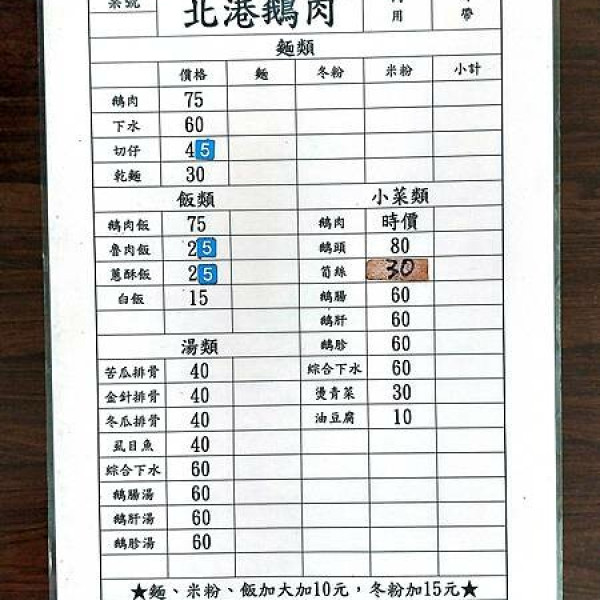 北港鵝肉
用
帶
麵類
價格 麵 冬粉 米粉 小計
鵝肉 75
下水 60
切仔 45
乾麵 30
飯類 小菜類
鵝肉飯 75 鵝肉 時價
魯肉飯 25 鵝頭 80
蔥酥飯 25 筍絲 30
白飯 15 鵝腸 60
鵝肝 60
湯類 鵝胗 60
苦瓜排骨 40 綜合下水 60
金針排骨 40 燙青菜 30
冬瓜排骨 40 油豆腐 10
虱目魚 40
綜合下水 60
鵝腸湯 60
鵝肝湯 60
鵝胗湯 60
★麵、米粉、飯加大加10元，冬粉加15元★